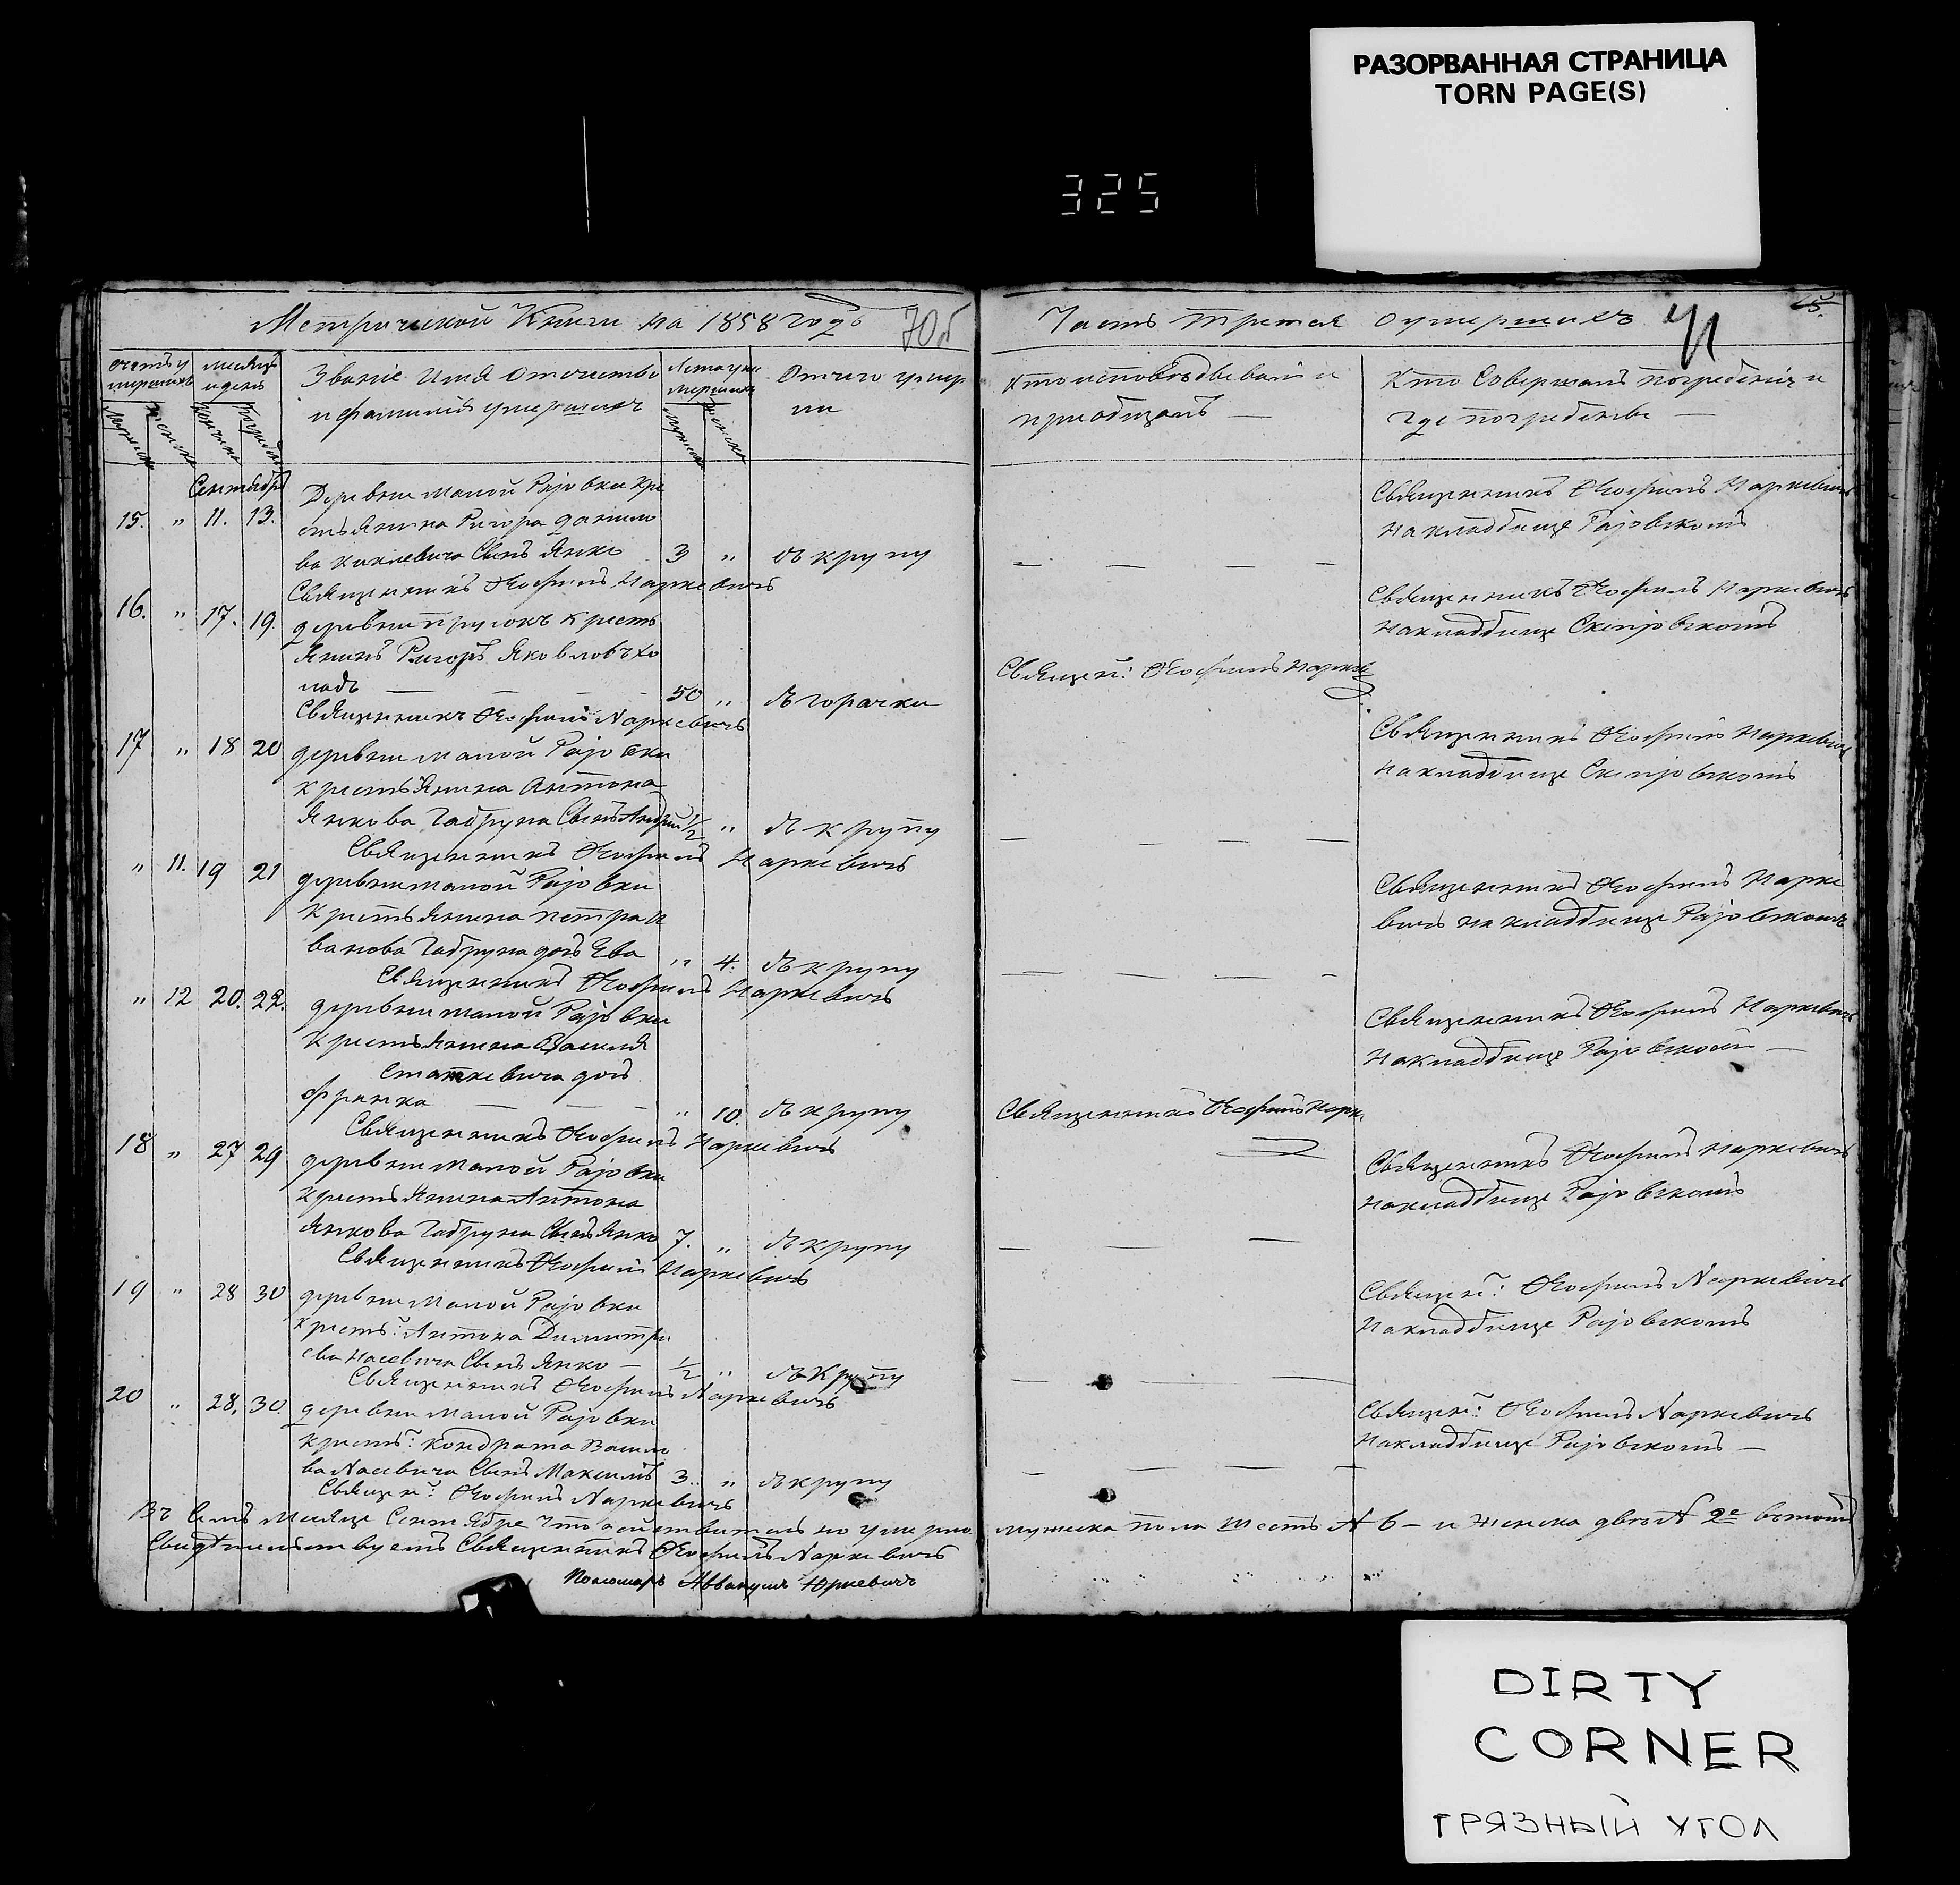 РАЗОРВАННАЯ СТРАНИЦА
TORN PAGE(S)
325
Метрической Книги на 1858 годъ
70об
Часть третья о умершихъ
71
Счетъ умершихъ
Месяцъ и день
Званіе имя отчество
и фамилія умершихъ
Лета умершихъ
Отчего умерли
Кто исповедывалъ и
приобщалъ —
Кто Совершалъ погребеніе и
где погребены —
Сентябрь
15. " 11. 13.
Деревни малой Раіовки кре
стьянина Ригора Данило
ва Сынъ Янко 3 " Въ крупу
— — — —
Священникъ Теофилъ Наркевичъ
на кладбище Раіовскомъ
Священникъ Теофилъ Наркевичъ
16. " 17. 19.
деревни Крестъ
янинъ Ригоръ Яковловъ Хо
50 " Въ горачки
Священ: Теофилъ Нарке
Священникъ Теофилъ Наркевичъ
на кладбище
Священникъ Теофилъ Наркевичъ
17 " 18 20
деревни малой Раіовки
крестьянина Антона
Янкова Габруна Сынъ Андрей 1/2 " Въ крупу
— — — —
Священникъ Теофилъ Наркевичъ
на кладбище
Священникъ Теофилъ Наркевичъ
" 11. 19 21
деревни малой Раіовки
Крестьянина Петра И
ванова Габруна дочь Ева " 4. Въ крупу
— — — —
Священникъ Теофилъ Нарке
вичъ на кладбище Раіовскомъ
Священникъ Теофилъ Наркевичъ
" 12 20. 22.
деревни малой Раіовки
Крестьянина Василя
Статкевича дочь
Франка — — — " 10. Въ крупу
Священникъ Теофилъ Нарк
Священникъ Теофилъ Наркевичъ
на кладбище Раіовскомъ —
Священникъ Теофилъ Наркевичъ
18 " 27 29
деревни малой Раіовки
крестьянина Антона
Янкова Габруна Сынъ Янко 7. " Въ крупу
— — —
Священникъ Теофилъ Наркевичъ
на кладбище Раіовскомъ
Священникъ Теофилъ Наркевичъ
19 " 28 30
деревни Малой Раіовки
крестъ: Антона Димитри
ева Насевича Сынъ Янко — 1/2 " Въ Крупу
Священ: Теофилъ Наркевичъ
на кладбище Раіовскомъ
Священникъ Теофилъ Наркевичъ
20 " 28. 30.
деревни малой Раіовки
Крестъ: Кондрата Васило
ва Насевича Сынъ Максимъ 3. " Въ крупу
Священ: Теофилъ Наркевичъ
на кладбище Раіовскомъ —
Священ: Теофилъ Наркевичъ
Въ Семъ Месяце Сентябре Что действительно умерло мужеска пола шесть № 6 — и женска две № 2е въ томъ
Свидетельствуетъ Священникъ Теофилъ Наркевичъ
Пономарь Аввакумъ Юркевичъ
DIRTY
CORNER
ГРЯЗНЫЙ УГОЛ